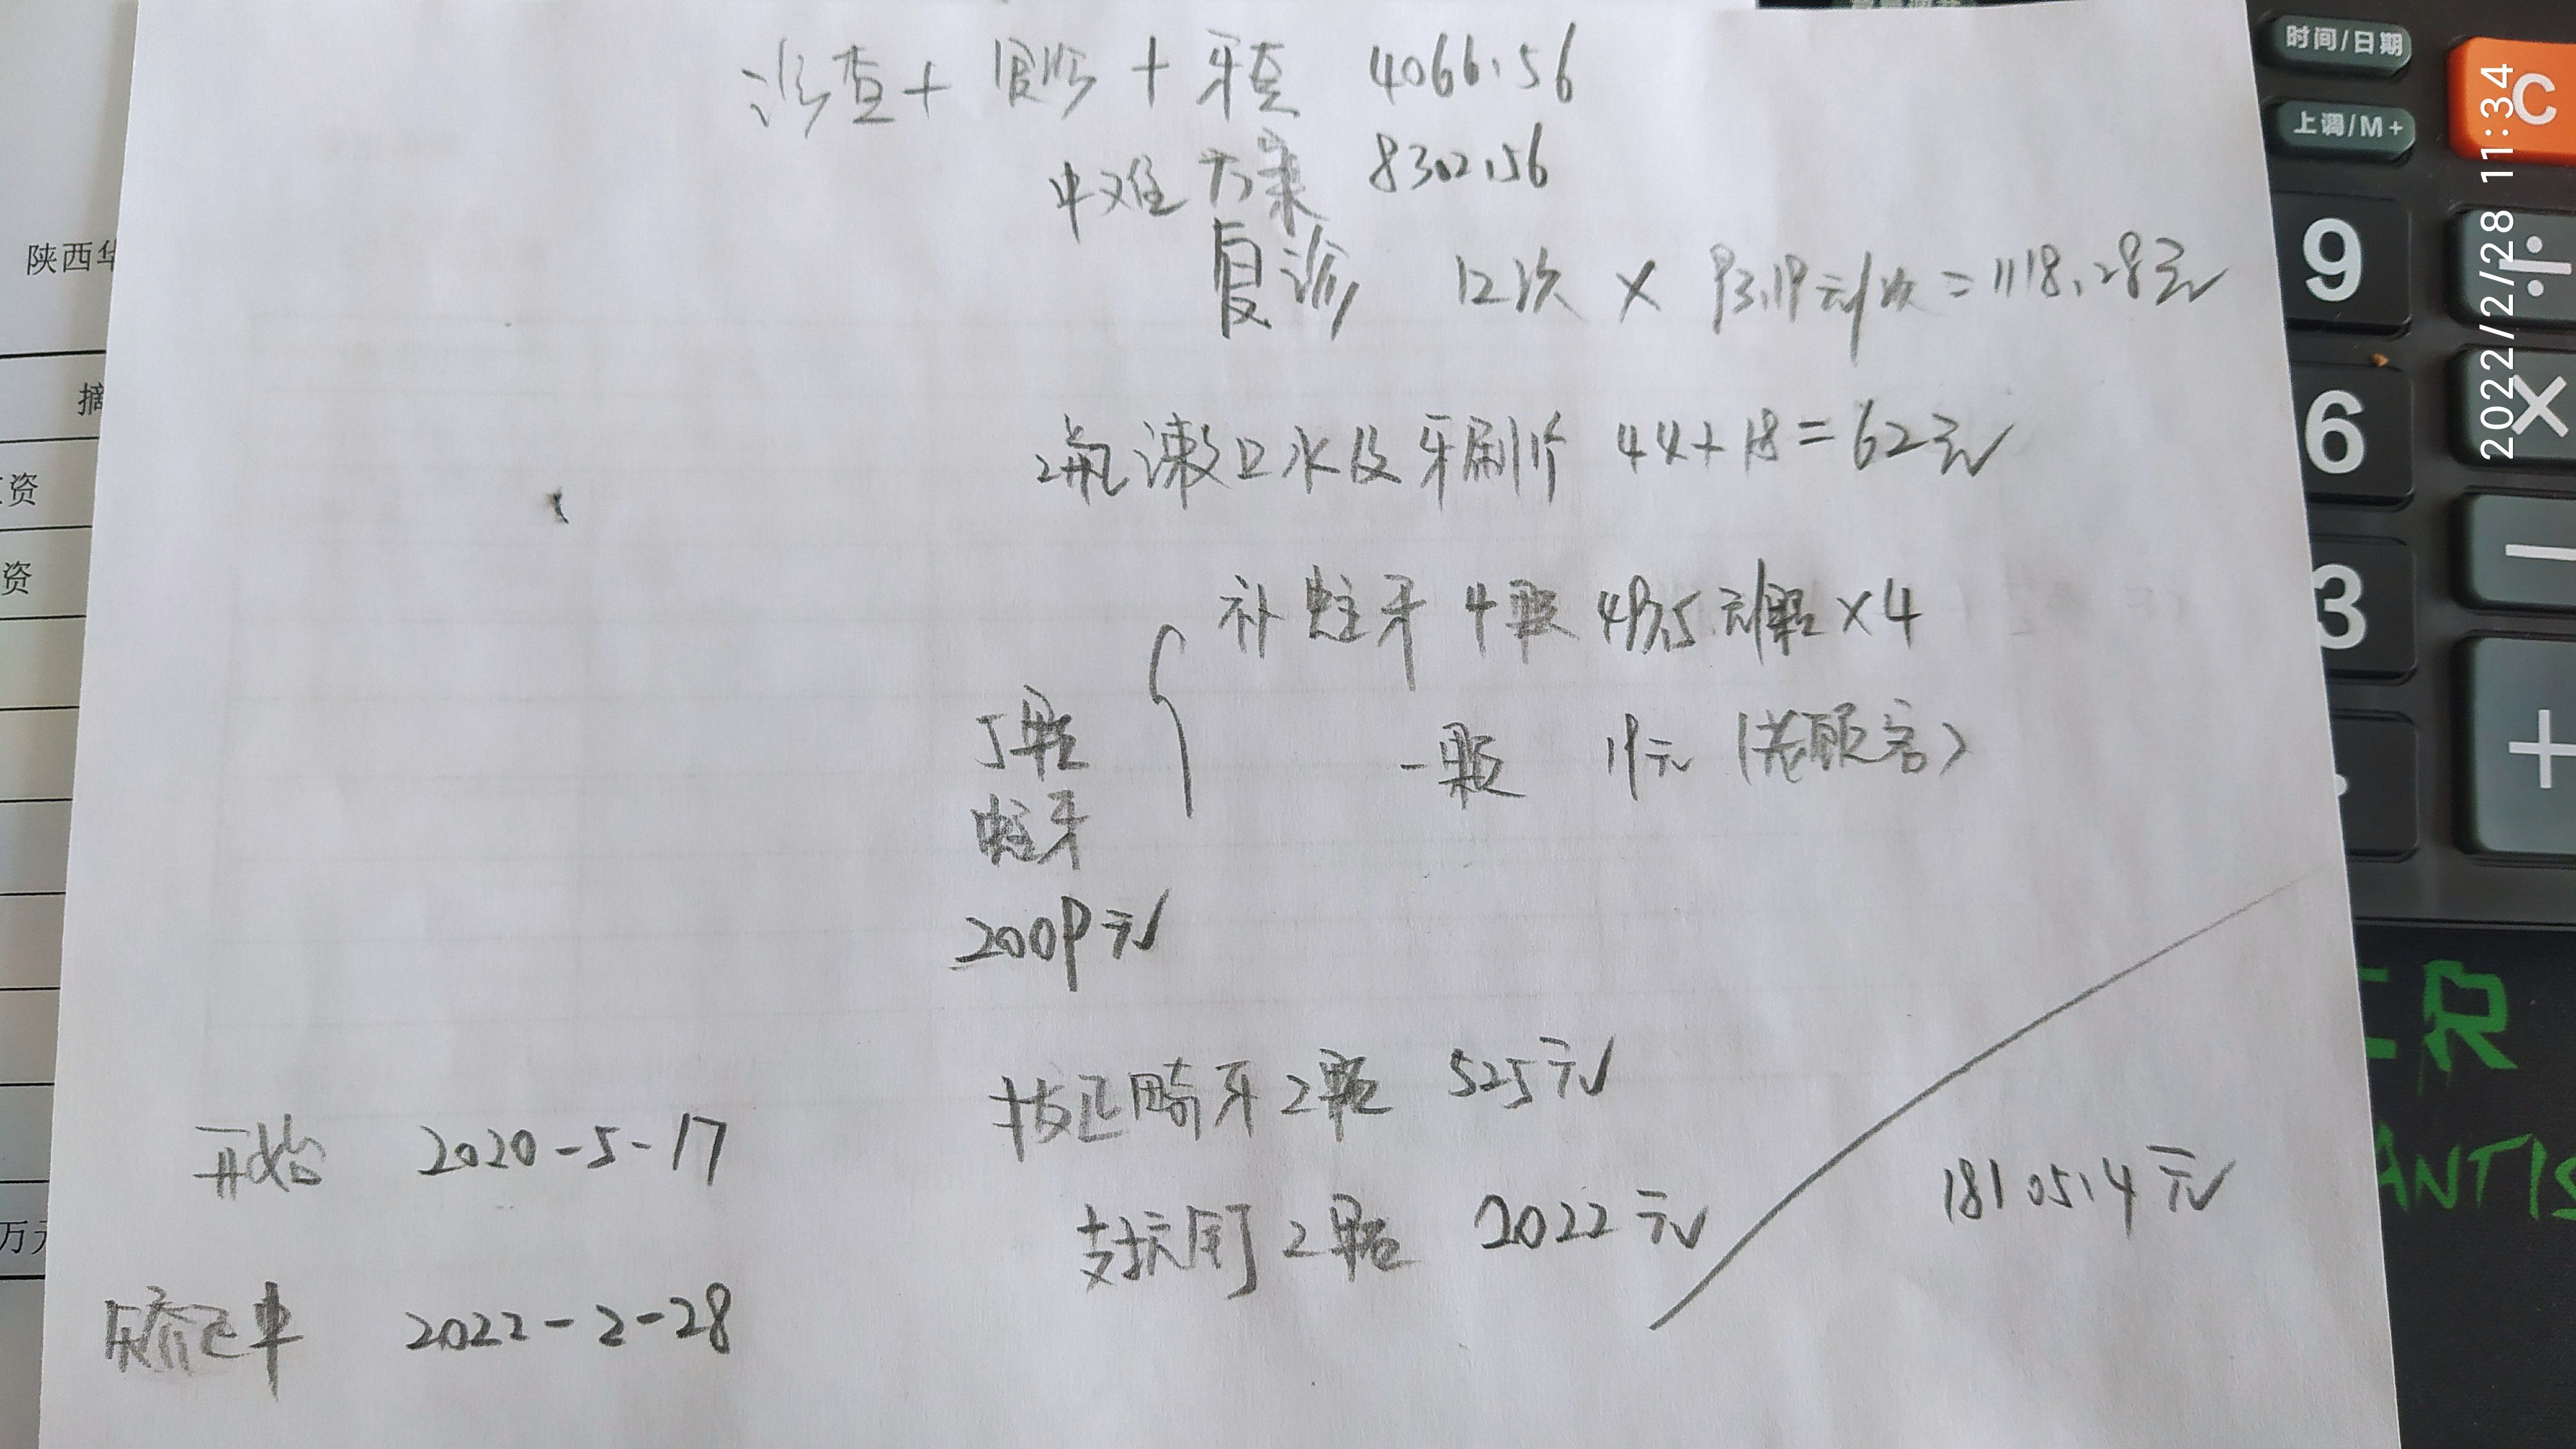 诊查+ 拍片 + 牙套 4066.56
中难 方案 8302.56
复诊 12次 × 93.19元/次 = 1118.28元
2瓶漱口水及牙刷1个 44+18=62元
补蛀牙 4颗 497.5元/颗×4
一颗 19元 (老顾客)
5颗
蛀牙
2009元
拔正畸牙2颗 525元
支抗钉2颗 2022元
18105.4元
开始 2020-5-17
矫正中 2022-2-28
陕西华
摘
资
资
万元
时间/日期
上调/M+
C
9
÷
6
×
3
-
+
.
ANTIS
2022/2/28 11:34